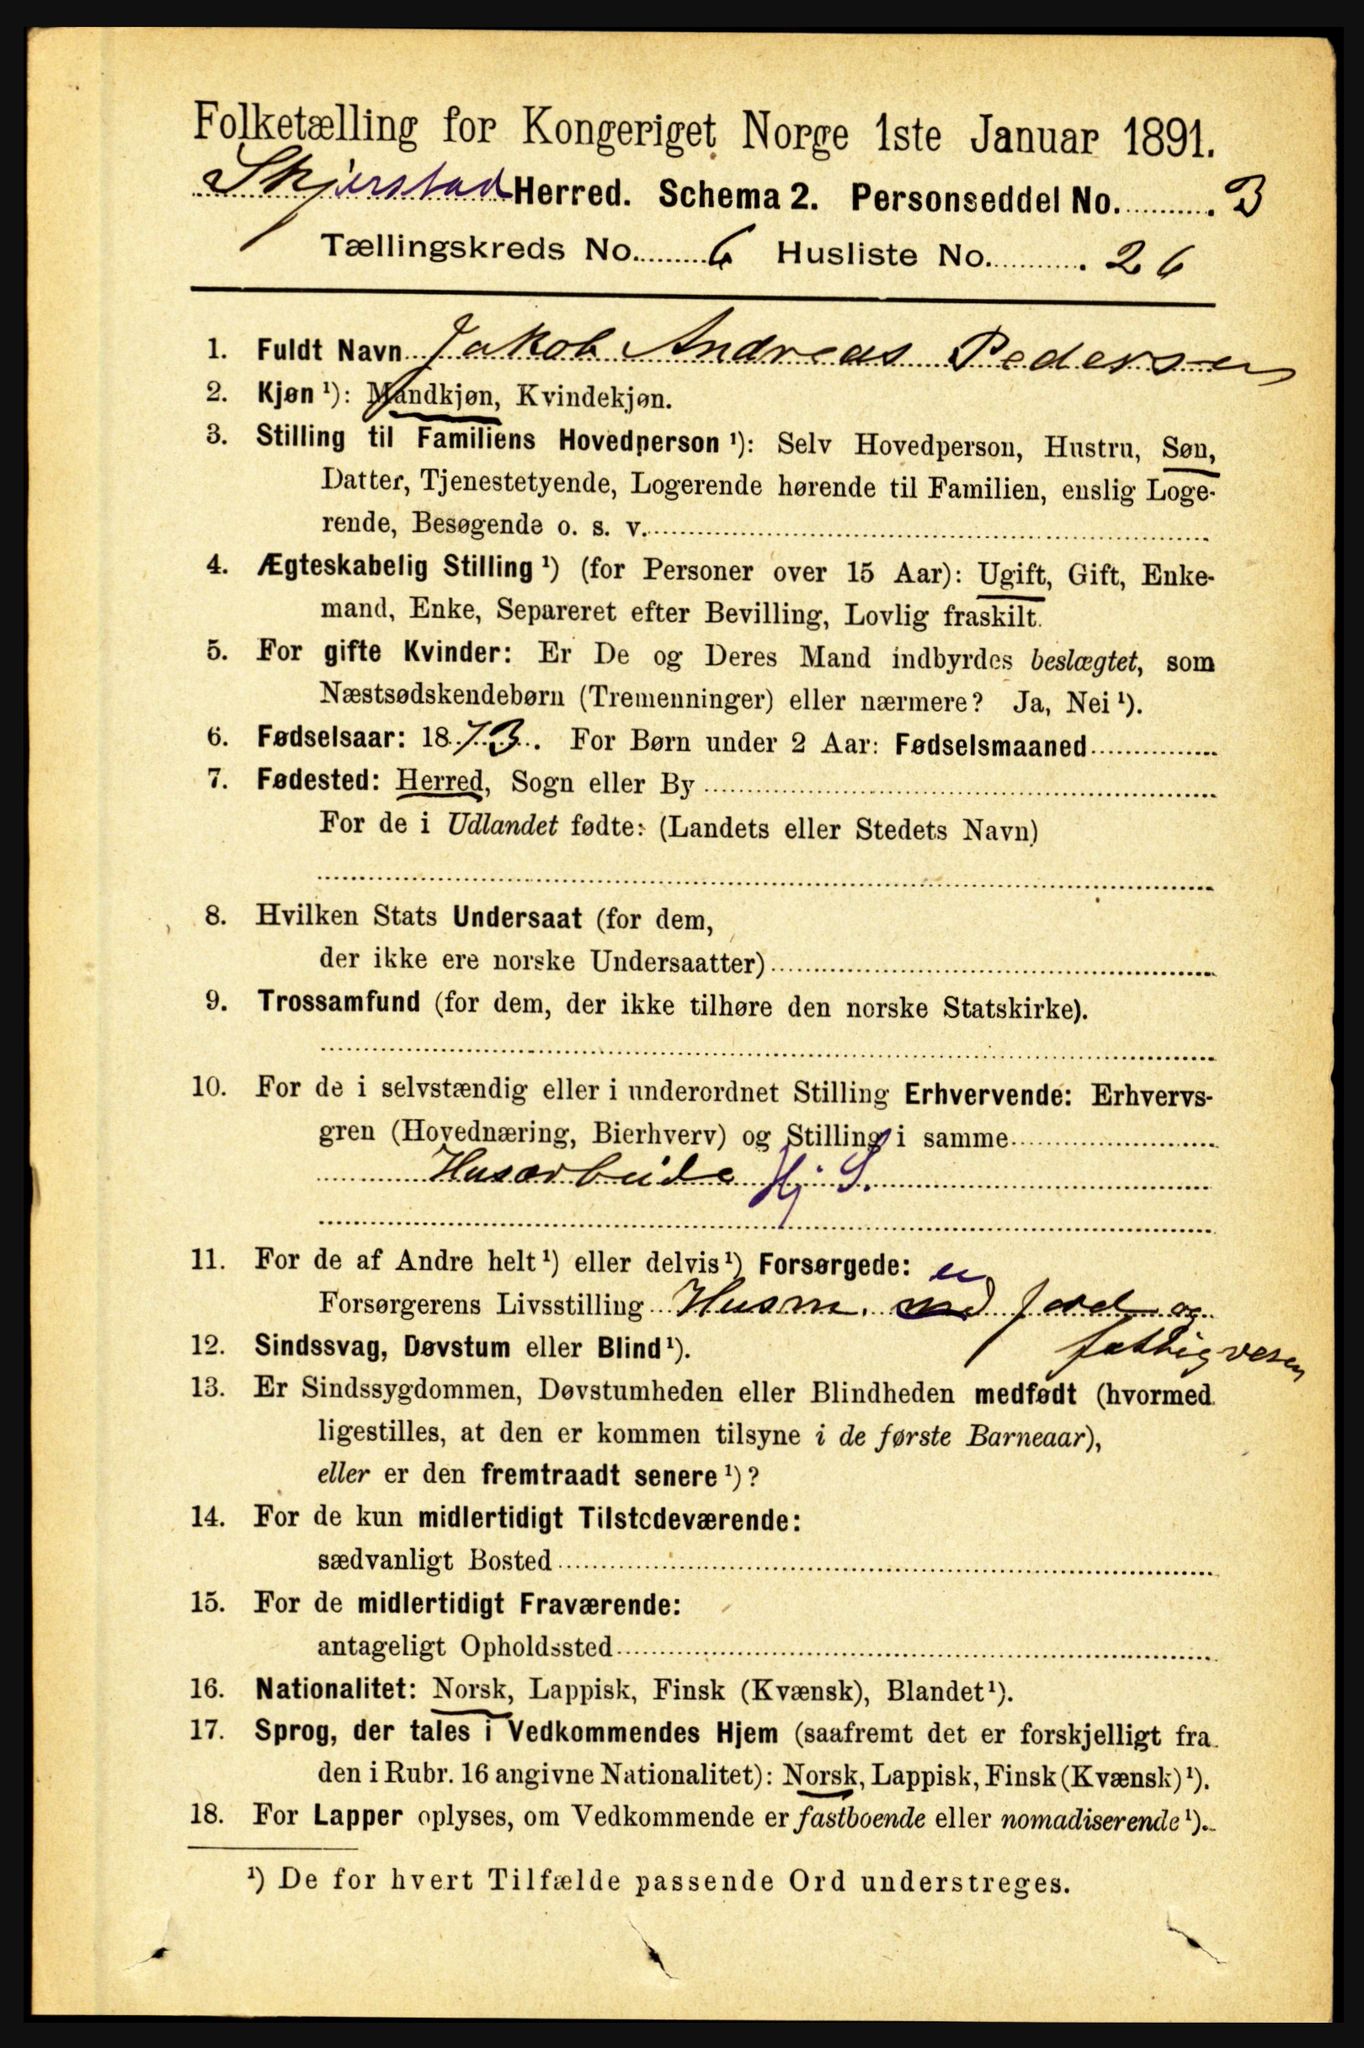 Folketælling for Kongeriget Norge 1ste Januar 1891.
Skjerstad Herred. Schema 2. Personseddel No. 3
Tællingskreds No. 6 Husliste No. 26
1. Fuldt Navn Jakob Andreas Pedersen
2. Kjøn ¹): Mandkjøn, Kvindekjøn.
3. Stilling til Familiens Hovedperson ¹): Selv Hovedperson, Hustru, Søn,
Datter, Tjenestetyende, Logerende hørende til Familien, enslig Loge-
rende, Besøgende o. s. v.
4. Ægteskabelig Stilling ¹) (for Personer over 15 Aar): Ugift, Gift, Enke-
mand, Enke, Separeret efter Bevilling, Lovlig fraskilt.
5. For gifte Kvinder: Er De og Deres Mand indbyrdes beslægtet, som
Næstsødskendebørn (Tremenninger) eller nærmere? Ja, Nei ¹).
6. Fødselsaar: 1873. For Børn under 2 Aar: Fødselsmaaned
7. Fødested: Herred, Sogn eller By
For de i Udlandet fødte: (Landets eller Stedets Navn)
8. Hvilken Stats Undersaat (for dem,
der ikke ere norske Undersaatter)
9. Trossamfund (for dem, der ikke tilhøre den norske Statskirke).
10. For de i selvstændig eller i underordnet Stilling Erhvervende: Erhvervs-
gren (Hovednæring, Bierhverv) og Stilling i samme
Husarbeide Hj S.
11. For de af Andre helt ¹) eller delvis ¹) Forsørgede:
Forsørgerens Livsstilling Husm. med jord og
fattigvesen
12. Sindssvag, Døvstum eller Blind ¹).
13. Er Sindssygdommen, Døvstumheden eller Blindheden medfødt (hvormed
ligestilles, at den er kommen tilsyne i de første Barneaar),
eller er den fremtraadt senere ¹)?
14. For de kun midlertidigt Tilstedeværende:
sædvanligt Bosted
15. For de midlertidigt Fraværende:
antageligt Opholdssted
16. Nationalitet: Norsk, Lappisk, Finsk (Kvænsk), Blandet ¹).
17. Sprog, der tales i Vedkommendes Hjem (saafremt det er forskjelligt fra
den i Rubr. 16 angivne Nationalitet): Norsk, Lappisk, Finsk (Kvænsk) ¹).
18. For Lapper oplyses, om Vedkommende er fastboende eller nomadiserende ¹).
¹) De for hvert Tilfælde passende Ord understreges.